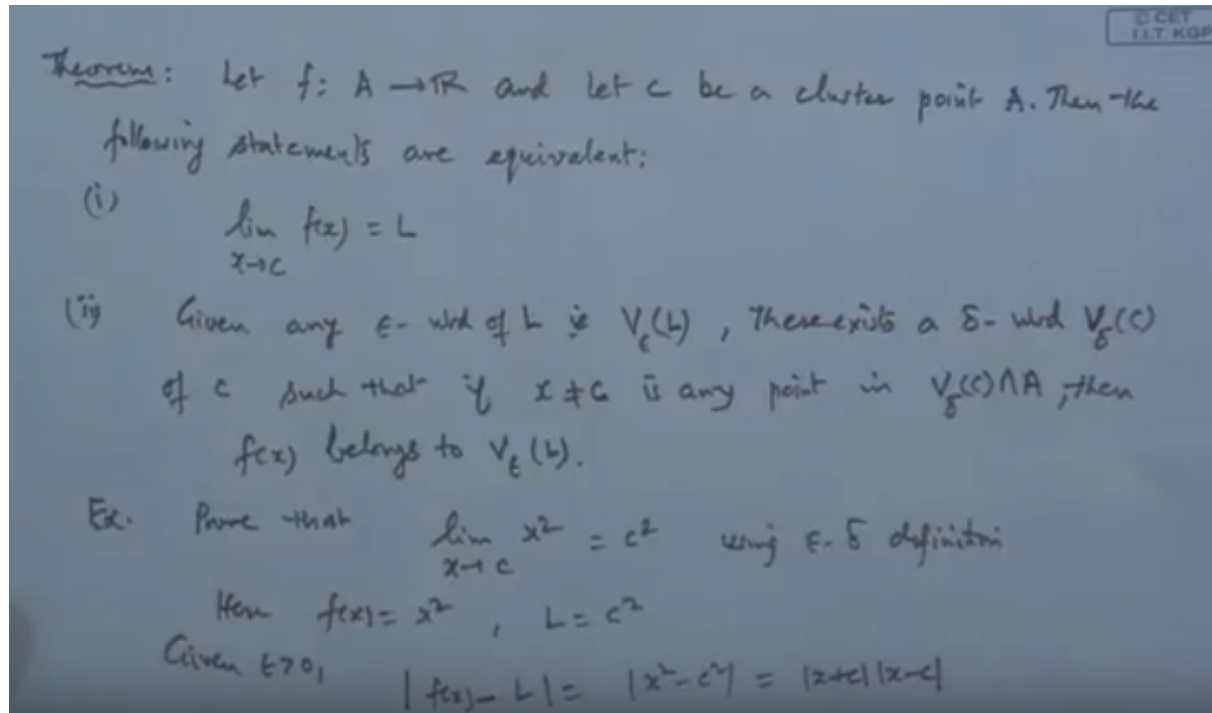 © CET
I.I.T. KGP
Theorem: Let f: A → ℝ and let c be a cluster point A. Then the
following statements are equivalent:
(i)
lim f(x) = L
x→c
(ii) Given any ε- nbd of L ie V_ε(L), there exists a δ- nbd V_δ(c)
of c such that if x ≠ c is any point in V_δ(c)∩A, then
f(x) belongs to V_ε(L).
Ex. Prove that lim x² = c² using ε-δ definition
x→c
Here f(x) = x², L = c²
Given ε>0,
|f(x) - L| = |x²-c²| = |x+c| |x-c|